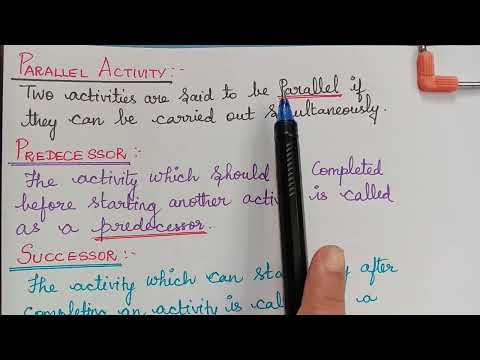 PARALLEL ACTIVITY :-
Two activities are said to be Parallel if
they can be carried out simultaneously.
PREDECESSOR :-
The activity which should Completed
before starting another is called
as a predecessor.
SUCCESSOR :-
The activity which can after
completing an activity is a